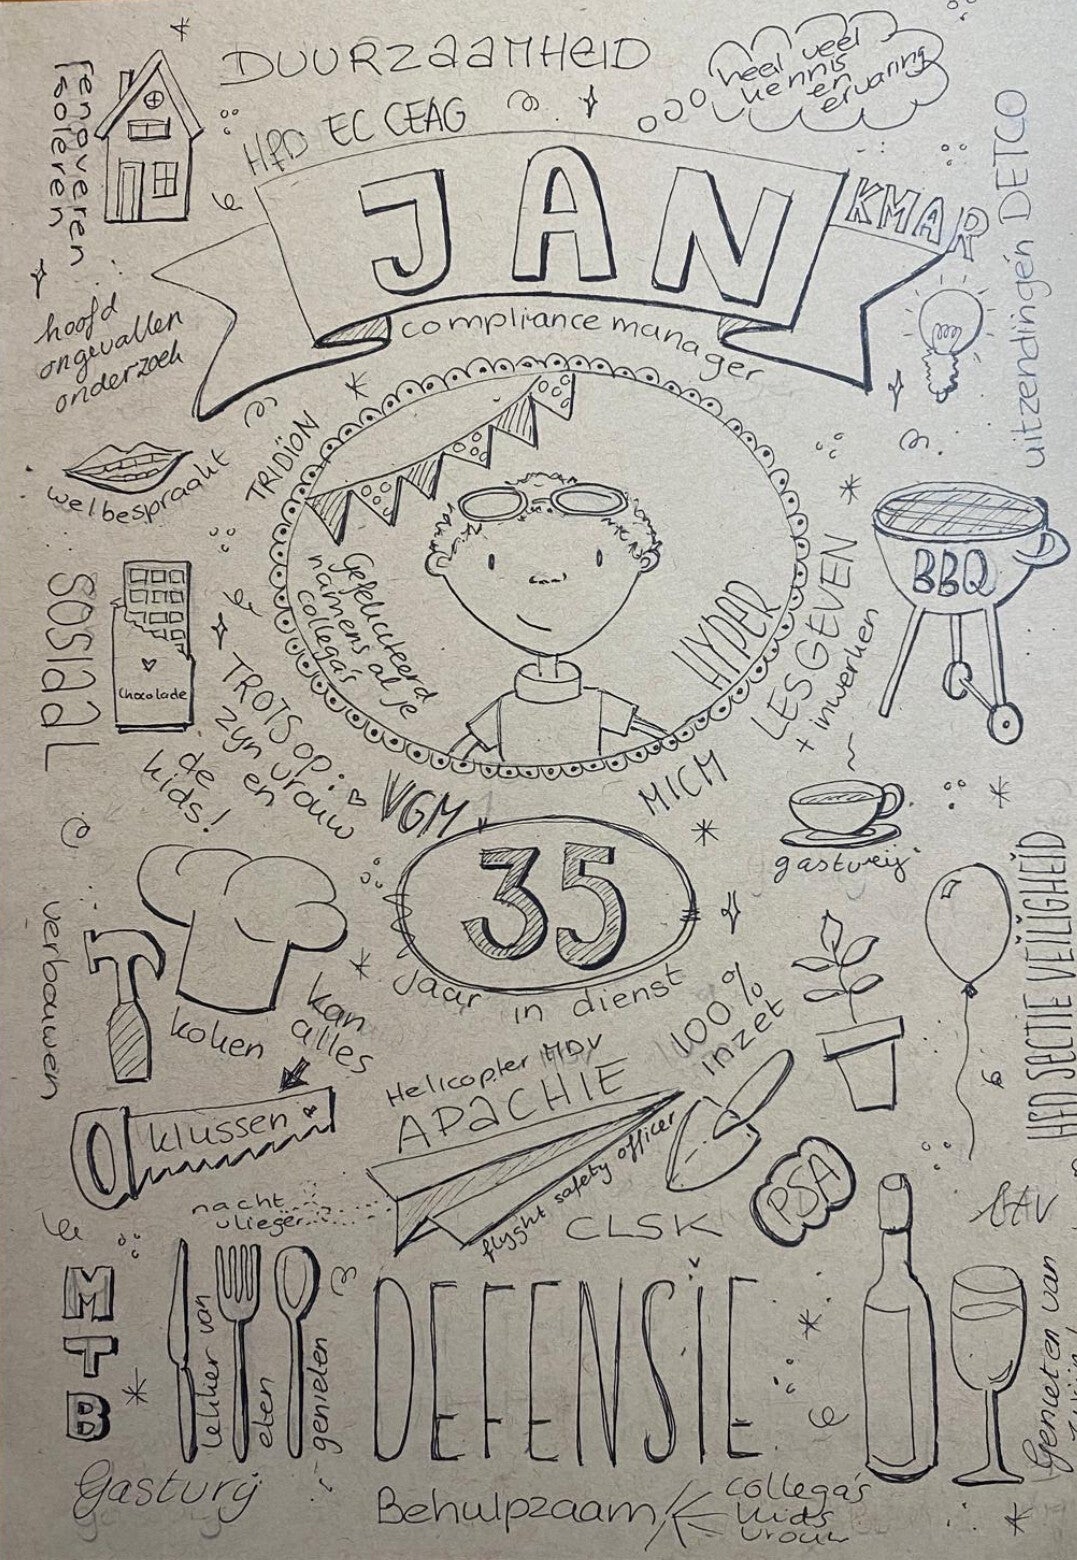 DUURZAAMHEID
heel veel
kennis
en
ervaring
renoveren
isoleren
HFD EC CEAG
JAN
KMAR
uitzendingen DETCO
compliance manager
hoofd
ongevallen
onderzoek
TRIDION
welbespraakt
BBQ
Gefeliciteerd
namens al je
collega's
HYPER
LESGEVEN
+ inwerken
SOSIAAL
Chocolade
TROTS op:
zijn vrouw
en
de
kids!
VGM
MICM
35
Jaar in dienst
gastvrij
HFD SECTIE VEILIGHEID
verbouwen
koken
kan
alles
100%
inzet
Helicopter MDV
APACHIE
klussen
flyght safety officer
nacht
vlieger
CLSK
PSA
MTB
lekker van
eten
genieten
DEFENSIE
Genieten van
Gastvrij
Behulpzaam
collega's
kids
vrouw